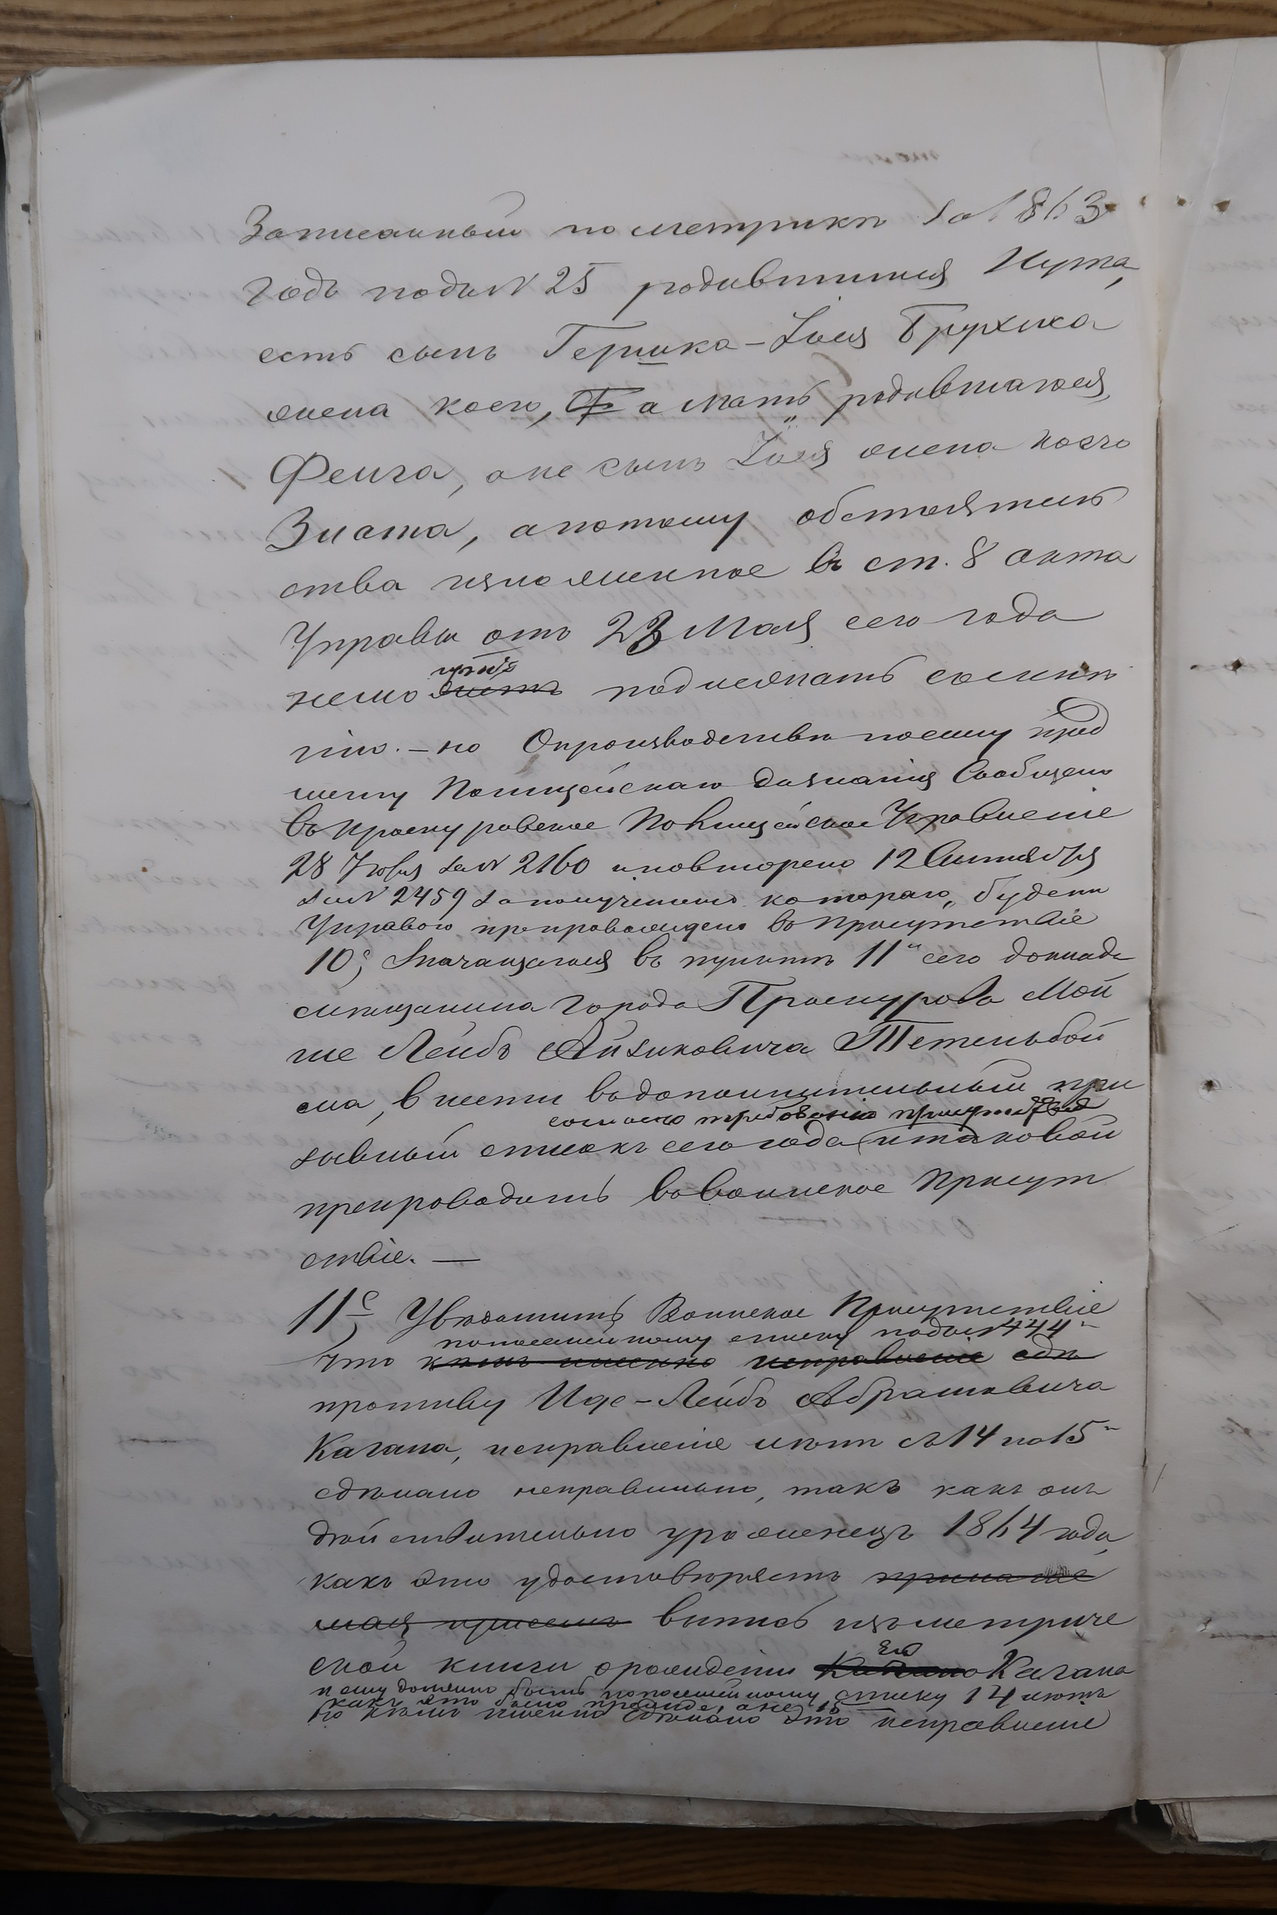 Записанный по метрики за 1863
годъ подъ N 25 родившимся Нута,
есть сынъ Гершка-Іося Брухиса
жена коего, а мать родившагося,
Фейга, а не сынъ Іося жена коего
Злата, а потому обстоятель
ства изложенное въ ст. 8 акта
Управы отъ 23 Мая сего года
немо подлежатъ сомнѣ
нію. – но О производствѣ посему пред
мету Полицейскаго дознанія Сообщено
въ Проскуровское Полицейское Управленіе
28 Іюля за N 2160 и повторено 12 Сентября
за N 2459 за полученіемъ котораго, будетъ
Управою препровождено въ Присутствіе
10е, Значащагося въ пунктѣ 11м сего доклада
мѣщанина города Проскурова Мой
ше Лейбъ Айзиковича Тетельбой
ма, внести въ дополнительный при
согласно требованію присутствія
зывный списокъ сего года и таковой
препроводить въ воинское Присут
ствіе. —
11е, Увѣдомить Воинское Присутствіе
по посемейному списку подъ N 444
что кѣмъ именно исправленіе сдѣ
противу Иде-Лейбъ Абрамовича
Кагана, исправленіе лѣтъ съ 14 на 15
сдѣлано неправильно, такъ какъ онъ
дѣйствительно уроженецъ 1864 года,
какъ это удостовѣряетъ
выпись изъ метриче
ской книги о рожденіи Его Кагана
и ему должно быть по посемейному списку 14 лѣтъ
какъ это было прежде, а не 15
но кѣмъ именно сдѣлано это исправленіе